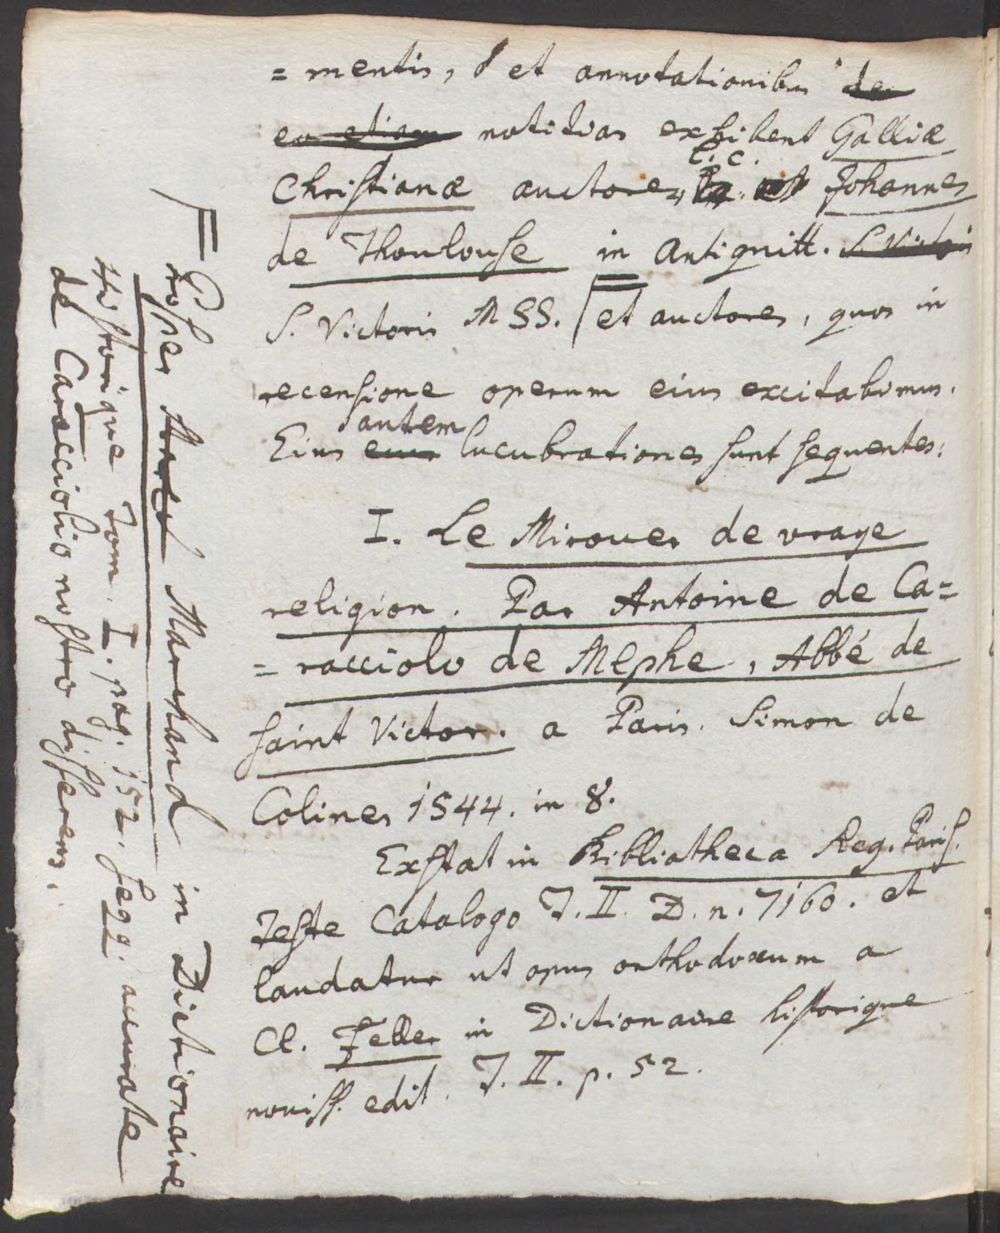 = mentis, et annotationibus de
eo etiam notitias exhibent Galliæ
l. c.
Christianæ auctores, Johannes
de Thoulouse in Antiquitt. S. Victoris
S. Victoris MSS. et auctores, quos in
recensione operum eius excitabimus.
autem
Eius eius lucubrationes sunt sequentes:
I. Le Mirouer de vraye
religion. Par Antoine de Ca=
= racciolo de Melphe, Abbé de
saint Victor. a Paris. Simon de
Colines 1544. in 8.
Exstat in Bibliotheca Reg. Paris.
Teste Catalogo T. II. D. n. 7160. et
laudatur ut opus orthodoxum a
Cl. Feller in Dictionaire historique
noviss. edit. T. II. p. 52.
Prosper Marchand in Dictionaire
Historique Tom. I. pag. 152. seqq. accurate
de Caracciolio nostro disserens.